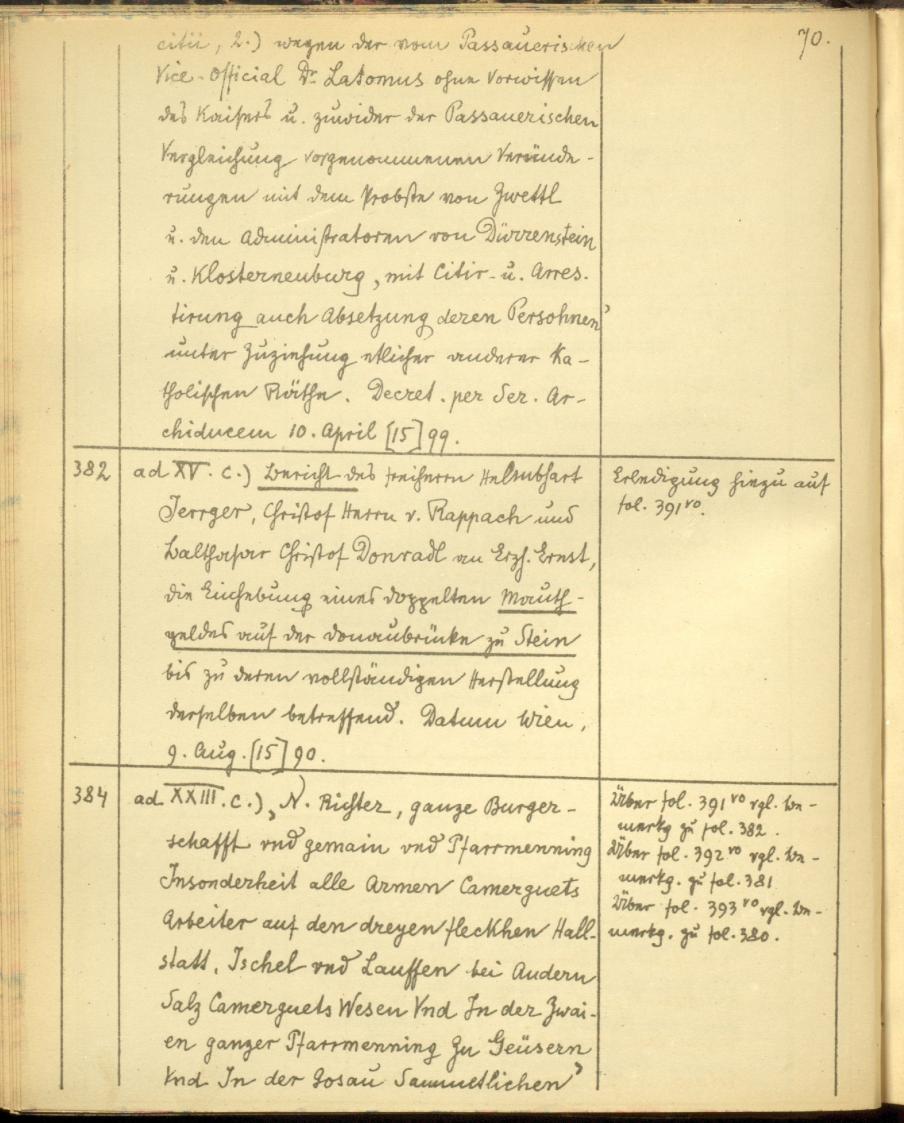 70.
citii, 2.) wegen der vom Passauerischen
Vice-Official Dr Latomus ohne Vorwissen
des Kaisers u. zuwider der Passauerischen
Vergleichung vorgenommenen Verände-
rungen mit dem Probste von Zwettl
u. den Administratoren von Dürrenstein
u. Klosterneuburg, mit Citir- u. Arres-
tirung auch Absetzung deren Persohnen
unter Zuziehung etlicher anderer Ka-
tholischen Räthe. Decret. per Ser. Ar-
chiducem 10. April [15]99.
382
ad XV. C.) Bericht des Freiherrn Helmbhart
Jerrger, Christof Herrn v. Rappach und
Balthasar Christof Donradl an Erzh. Ernst,
die Einhebung eines doppelten Mauth-
geldes auf der Donaubrücke zu Stein
bis zu deren vollständigen Herstellung
derselben betreffend. Datum Wien,
9. Aug. [15]90.
Erledigung hiezu auf
fol. 391 vo.
384
ad XXIII. C.) N. Richter, ganze Burger-
schafft vnd gemain vnd Pfarrmenning
Insonderheit alle Armen Camerguets
Arbeiter auf den dreyen fleckhen Hall-
statt, Ischel vnd Lauffen bei Andern
Salz Camerguets Wesen Vnd In der Zwai-
en ganzer Pfarrmenning Zu Geüsern
Vnd In der Gosau Sammetlichen
Über fol. 391 vo vgl. Be-
merkg zu fol. 382.
Über fol. 392 vo vgl. Be-
merkg. zu fol. 381
Über fol. 393 vo vgl. Be-
merkg. zu fol. 380.